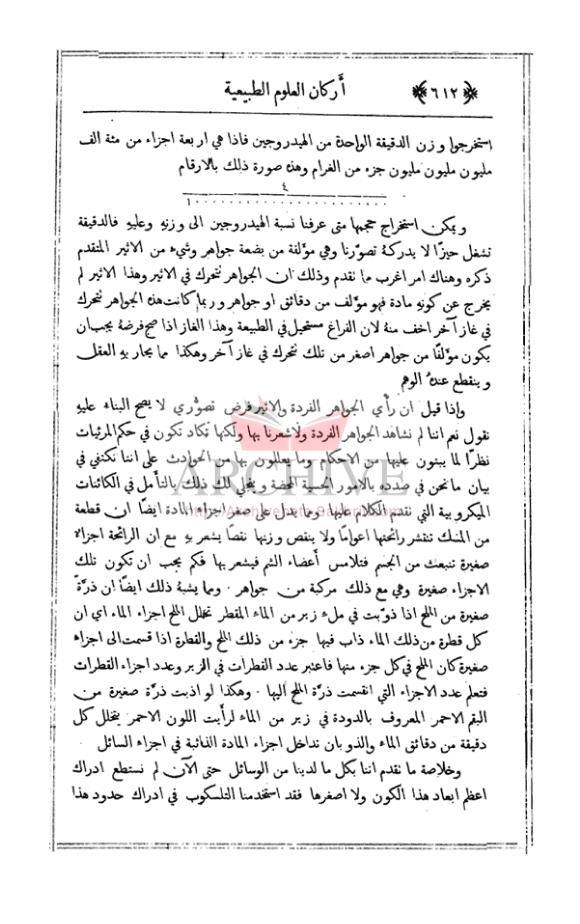 ﴿٦١٢﴾ أركان العلوم الطبيعية
استخرجوا وزن الدقيقة الواحدة من الهيدروجين فاذا هي اربعة اجزاء من مئة الف
مليون مليون مليون جزء من الغرام وهذه صورة ذلك بالارقام
٤
ويمكن استخراج حجمها متى عرفنا نسبة الهيدروجين الى وزنهِ وعليهِ فالدقيقة
تشغل حيزًا لا يدركهُ تصوّرنا وهي مؤلفة من بضعة جواهر وشيء من الاثير المتقدم
ذكره وهناك امر اغرب مما تقدم وذلك ان الجواهر تتحرك في الاثير وهذا الاثير لم
يخرج عن كونهِ مادة فهو مؤلف من دقائق او جواهر وربما كانت هذه الجواهر تتحرك
في غاز آخر اخف منهُ لان الفراغ مستحيل في الطبيعة وهذا الغاز اذا صح فرضهُ يجب ان
يكون مؤلفًا من جواهر اصغر من تلك تتحرك في غاز آخر وهكذا مما يحار بهِ العقل
وينقطع عندهُ الوهم
واذا قيل ان رأي الجواهر الفردة والاثير فرض تصوُّري لا يصح البناء عليهِ
نقول نعم اننا لم نشاهد الجواهر الفردة ولا شعرنا بها ولكنها تكاد تكون في حكم المرئيات
نظرًا لما يبنون عليها من الاحكام وما يعللون بها من الحوادث على اننا نكتفي في
بيان ما نحن في صدده بالامور الحسية المحضة وينجلي لك ذلك بالتأمل في الكائنات
الميكروبية التي تقدم الكلام عليها. ومما يدل على صغر اجزاء المادة ايضًا ان قطعة
من المسك تنتشر رائحتها اعوامًا ولا ينقص وزنها نقصًا يشعر بهِ مع ان الرائحة اجزاء
صغيرة تنبعث من الجسم فتلامس أعضاء الشم فيشعر بها فكم يجب ان تكون تلك
الاجزاء صغيرة وهي مع ذلك مركبة من جواهر. ومما يشبهُ ذلك ايضًا ان ذرّة
صغيرة من الملح اذا ذوّبت في ملء زير من الماء المقطر تخلل الملح اجزاء الماء اي ان
كل قطرة من ذلك الماء ذاب فيها جزء من ذلك الملح والقطرة اذا قسمت الى اجزاء
صغيرة كان الملح في كل جزء منها فاعتبر عدد القطرات في الزير وعدد اجزاء القطرات
فتعلم عدد الاجزاء التي انقسمت ذرّة الملح اليها. وهكذا لو اذبت ذرّة صغيرة من
البقم الاحمر المعروف بالدودة في زير من الماء لرأيت اللون الاحمر يتخلل كل
دقيقة من دقائق الماء والذوبان تداخل اجزاء المادة الذائبة في اجزاء السائل
وخلاصة ما تقدم اننا بكل ما لدينا من الوسائل حتى الآن لم نستطع ادراك
اعظم ابعاد هذا الكون ولا اصغرها فقد استخدمنا التلسكوب في ادراك حدود هذا
ARCHIVE